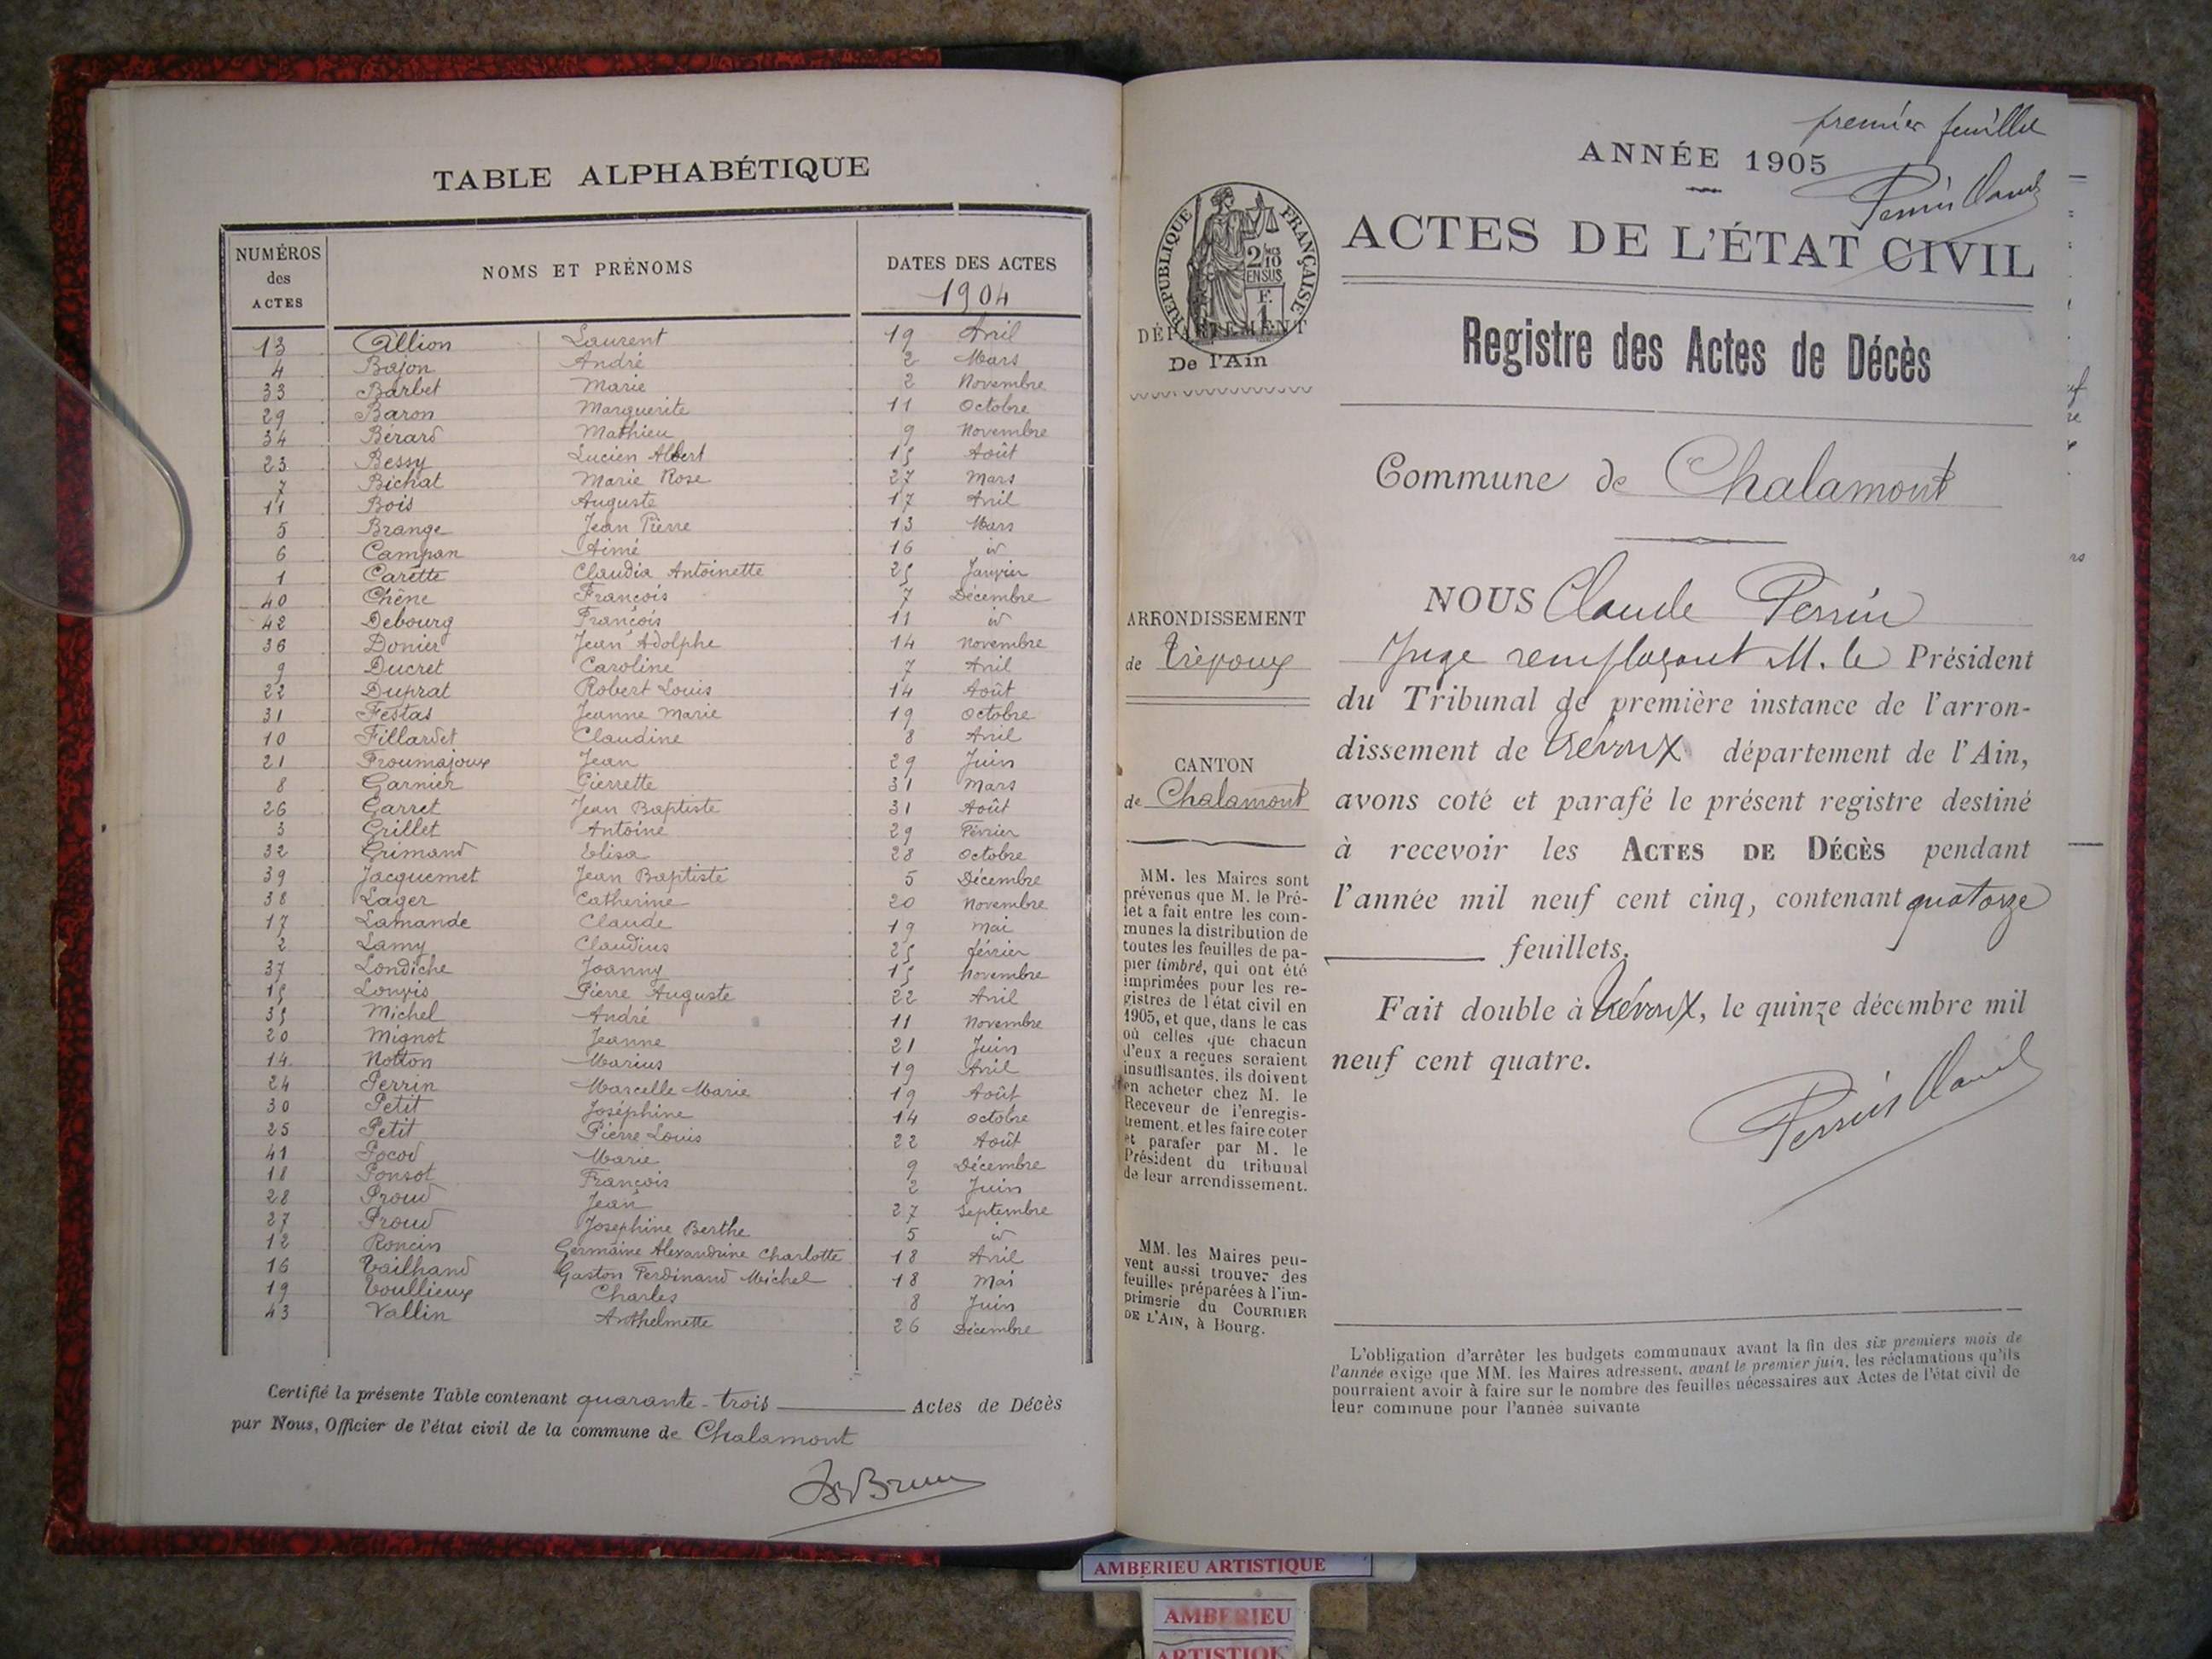 TABLE ALPHABÉTIQUE
NUMÉROS des ACTES NOMS ET PRÉNOMS DATES DES ACTES 1904
13 Allion Laurent 19 Avril
4 Bajon André 2 Mars
33 Barbet Marie 2 Novembre
29 Baron Marguerite 11 Octobre
34 Bérard Mathieu 9 Novembre
23 Bessy Lucien Albert 15 Août
7 Bichat Marie Rose 27 Mars
11 Bois Auguste 17 Avril
5 Brange Jean Pierre 13 Mars
6 Campan Aimé 16 id
1 Carette Claudia Antoinette 25 Janvier
40 Chêne François 7 Décembre
42 Debourg François 11 id
36 Donier Jean Adolphe 14 Novembre
9 Ducret Caroline 7 Avril
22 Duprat Robert Louis 14 Août
31 Festas Jeanne Marie 19 Octobre
10 Fillardet Claudine 8 Avril
21 Froumajoux Jean 29 Juin
8 Garnier Pierrette 31 Mars
26 Garret Jean Baptiste 31 Août
3 Grillet Antoine 29 Février
32 Grimand Elisa 28 Octobre
39 Jacquemet Jean Baptiste 5 Décembre
38 Lager Catherine 20 Novembre
17 Lamande Claude 19 Mai
2 Lamy Claudius 25 février
37 Londiche Joanny 15 Novembre
15 Louvis Pierre Auguste 22 Avril
35 Michel André 11 Novembre
20 Mignot Jeanne 21 Juin
14 Notton Marius 19 Avril
24 Perrin Marcelle Marie 19 Août
30 Petit Joséphine 14 Octobre
25 Petit Pierre Louis 22 Août
41 Pocod Marie 9 Décembre
18 Ponsot François 2 Juin
28 Proud Jean 27 Septembre
27 Proud Josephine Berthe 5 id
12 Roncin Germaine Alexandrine Charlotte 18 Avril
16 Vailhand Gaston Ferdinand Michel 18 Mai
19 Voullieux Charles 8 Juin
43 Vallin Anthelmette 26 Décembre
Certifié la présente Table contenant quarante-trois Actes de Décès
par Nous, Officier de l'état civil de la commune de Chalamont
premier feuillet
ANNÉE 1905
Perrin Claude
ACTES DE L'ÉTAT CIVIL
RÉPUBLIQUE FRANÇAISE
2/10
EN SUS
F. 1
DÉPARTEMENT
De l'Ain
Registre des Actes de Décès
Commune de Chalamont
ARRONDISSEMENT
de Trévoux
CANTON
de Chalamont
MM. les Maires sont
prévenus que M. le Pré-
fet a fait entre les com-
munes la distribution de
toutes les feuilles de pa-
pier timbré, qui ont été
imprimées pour les re-
gistres de l'état civil en
1905, et que, dans le cas
où celles que chacun
d'eux a reçues seraient
insuffisantes, ils doivent
en acheter chez M. le
Receveur de l'enregis-
trement, et les faire coter
et parafer par M. le
Président du tribunal
de leur arrondissement.
MM. les Maires peu-
vent aussi trouver des
feuilles préparées à l'im-
primerie du COURRIER
DE L'AIN, à Bourg.
NOUS Claude Perrin
Juge remplaçant M. le Président
du Tribunal de première instance de l'arron-
dissement de Trévoux département de l'Ain,
avons coté et parafé le présent registre destiné
à recevoir les ACTES DE DÉCÈS pendant
l'année mil neuf cent cinq, contenant quatorze
feuillets.
Fait double à Trévoux, le quinze décembre mil
neuf cent quatre.
Perrin Claude
L'obligation d'arrêter les budgets communaux avant la fin des six premiers mois de
l'année exige que MM. les Maires adressent, avant le premier juin, les réclamations qu'ils
pourraient avoir à faire sur le nombre des feuilles nécessaires aux Actes de l'état civil de
leur commune pour l'année suivante
AMBERIEU ARTISTIQUE
AMBERIEU